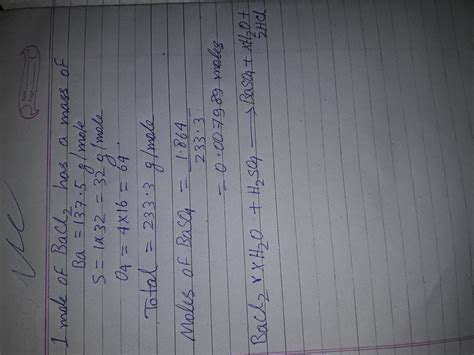 1 mole of BaCl2 has a mass of
Ba = 137.5 g/mole
S = 1x32 = 32 g/mole
O4 = 4x16 = 64
Total = 233.3 g/mole
Moles of BaSO4 = 1.864
233.3
= 0.007989 moles
BaCl2 xxH2O + H2SO4 → BaSO4 + xH2O +
2HCl